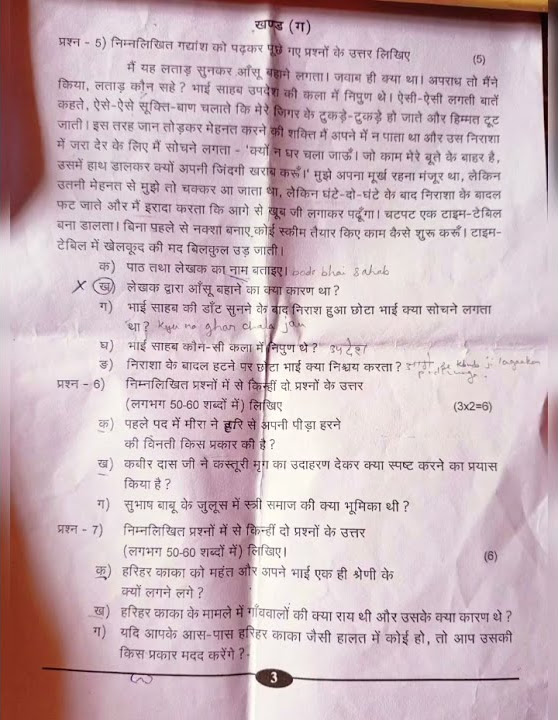 खण्ड (ग)
प्रश्न - 5) निम्नलिखित गद्यांश को पढ़कर पूछे गए प्रश्नों के उत्तर लिखिए (5)
मैं यह लताड़ सुनकर आँसू बहाने लगता। जवाब ही क्या था। अपराध तो मैंने
किया, लताड़ कौन सहे ? भाई साहब उपदेश की कला में निपुण थे। ऐसी-ऐसी लगती बातें
कहते, ऐसे-ऐसे सूक्ति-बाण चलाते कि मेरे जिगर के टुकड़े-टुकड़े हो जाते और हिम्मत टूट
जाती। इस तरह जान तोड़कर मेहनत करने की शक्ति मैं अपने में न पाता था और उस निराशा
में जरा देर के लिए मैं सोचने लगता - 'क्यों न घर चला जाऊँ। जो काम मेरे बूते के बाहर है,
उसमें हाथ डालकर क्यों अपनी जिंदगी खराब करूँ।' मुझे अपना मूर्ख रहना मंजूर था, लेकिन
उतनी मेहनत से मुझे तो चक्कर आ जाता था, लेकिन घंटे-दो-घंटे के बाद निराशा के बादल
फट जाते और मैं इरादा करता कि आगे से खूब जी लगाकर पढूँगा। चटपट एक टाइम-टेबिल
बना डालता। बिना पहले से नक्शा बनाए कोई स्कीम तैयार किए काम कैसे शुरू करूँ। टाइम-
टेबिल में खेलकूद की मद बिलकुल उड़ जाती।
क) पाठ तथा लेखक का नाम बताइए। bade bhai sahab
X ख) लेखक द्वारा आँसू बहाने का क्या कारण था ?
ग) भाई साहब की डाँट सुनने के बाद निराश हुआ छोटा भाई क्या सोचने लगता
था ? kyu na ghar chala jau
घ) भाई साहब कौन-सी कला में निपुण थे ? उपदेश
ङ) निराशा के बादल हटने पर छोटा भाई क्या निश्चय करता ? khub ji lagaakar
प्रश्न - 6) निम्नलिखित प्रश्नों में से किन्हीं दो प्रश्नों के उत्तर
(लगभग 50-60 शब्दों में) लिखिए (3x2=6)
क) पहले पद में मीरा ने हरि से अपनी पीड़ा हरने
की विनती किस प्रकार की है ?
ख) कबीर दास जी ने कस्तूरी मृग का उदाहरण देकर क्या स्पष्ट करने का प्रयास
किया है ?
ग) सुभाष बाबू के जुलूस में स्त्री समाज की क्या भूमिका थी ?
प्रश्न - 7) निम्नलिखित प्रश्नों में से किन्हीं दो प्रश्नों के उत्तर
(लगभग 50-60 शब्दों में) लिखिए। (6)
क) हरिहर काका को महंत और अपने भाई एक ही श्रेणी के
क्यों लगने लगे ?
ख) हरिहर काका के मामले में गाँववालों की क्या राय थी और उसके क्या कारण थे ?
ग) यदि आपके आस-पास हरिहर काका जैसी हालत में कोई हो, तो आप उसकी
किस प्रकार मदद करेंगे ?
3